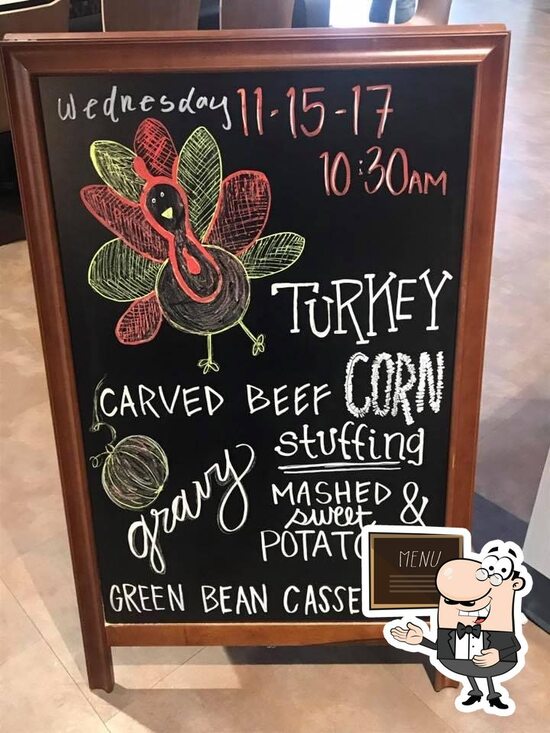 Wednesday 11-15-17
10:30AM
TURKEY
CARVED BEEF CORN
stuffing
gravy
MASHED &
sweet
GREEN BEAN
MENU